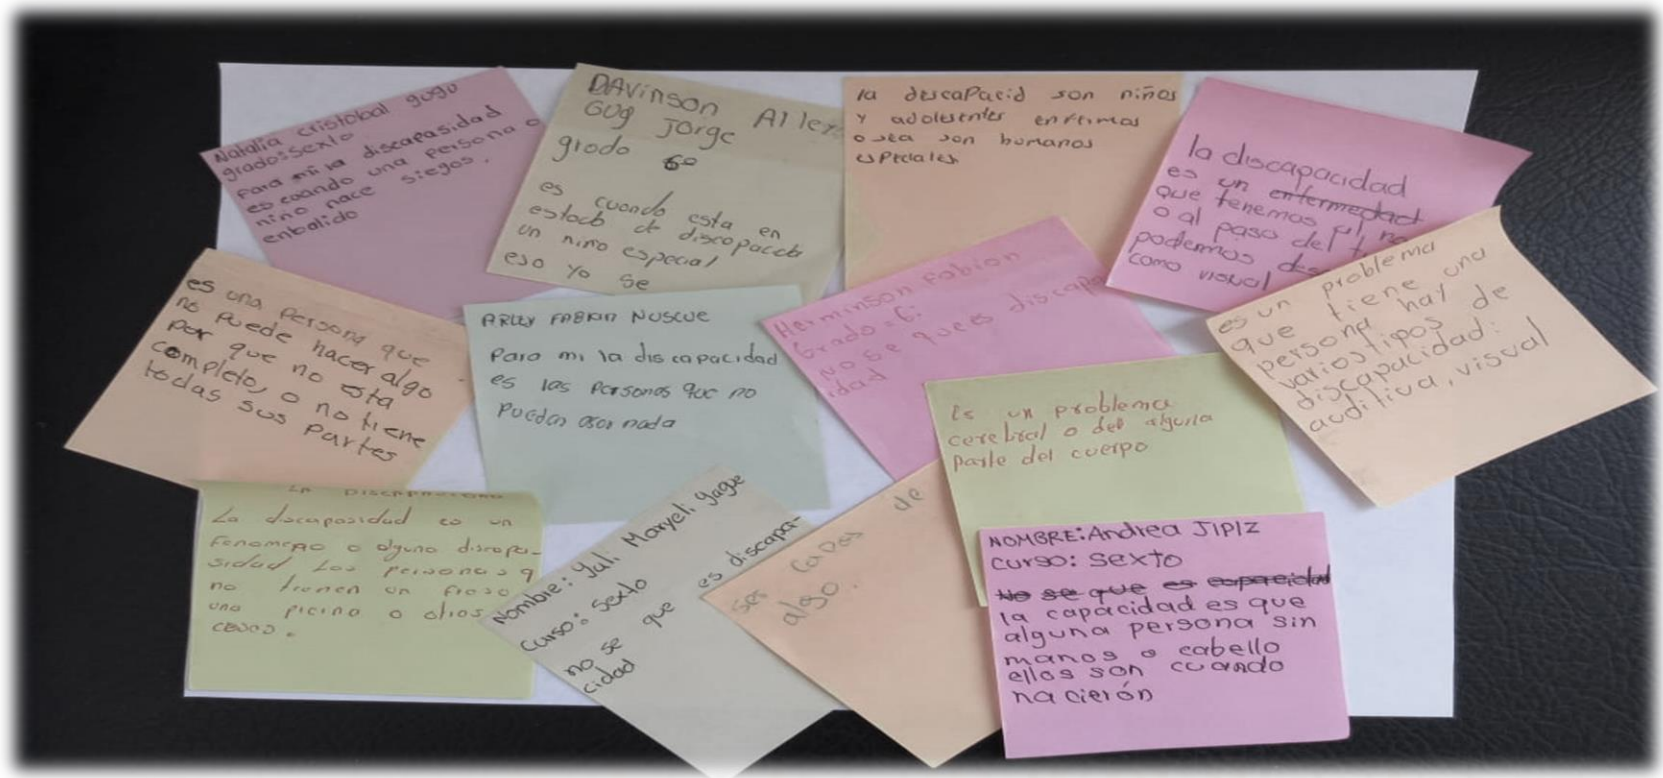 Natalia cristobal gugu
grado: sexto
Para mi la discapasidad
es cuando una persona o
niño nace siegos,
enbalido
DAvinson Arlex
Gug Jorge
grado 6º
es cuando esta en
estado de discapacida
un nino especial
eso yo se
la descapacid son niños
y adolesentes enfrimos
o sea son humanos
especiales
la discapacidad
es un enfermedad
que tenemos al na
o al paso del t
podemos des
como visual
es una persona que
no puede hacer algo
por que no esta
completo, o no tiene
todas sus partes
ARLEY FABIAN NUSCUE
Para mi la discapacidad
es las personas que no
puedan asar nada
Herminson Fabian
Grado = 6:
no se que es discapa
idad
es un problema
que tiene una
persona hay
varios tipos de
discapacidad:
auditiva, visual
Es un problema
cerebral o del alguna
parte del cuerpo
La discapasidad es un
fenomeno o alguna discapa-
sidad Las personas q
no tienen un
una o otros
casos.
Nombre: Yuli Maryeli Yague
Curso: sexto
no se que es discapa-
cidad
ser capas de
algo.
NOMBRE: Andrea JIPIZ
curso: sexto
No se que es capacidad
la capacidad es que
alguna persona sin
manos o cabello
ellos son cuando
nacierón